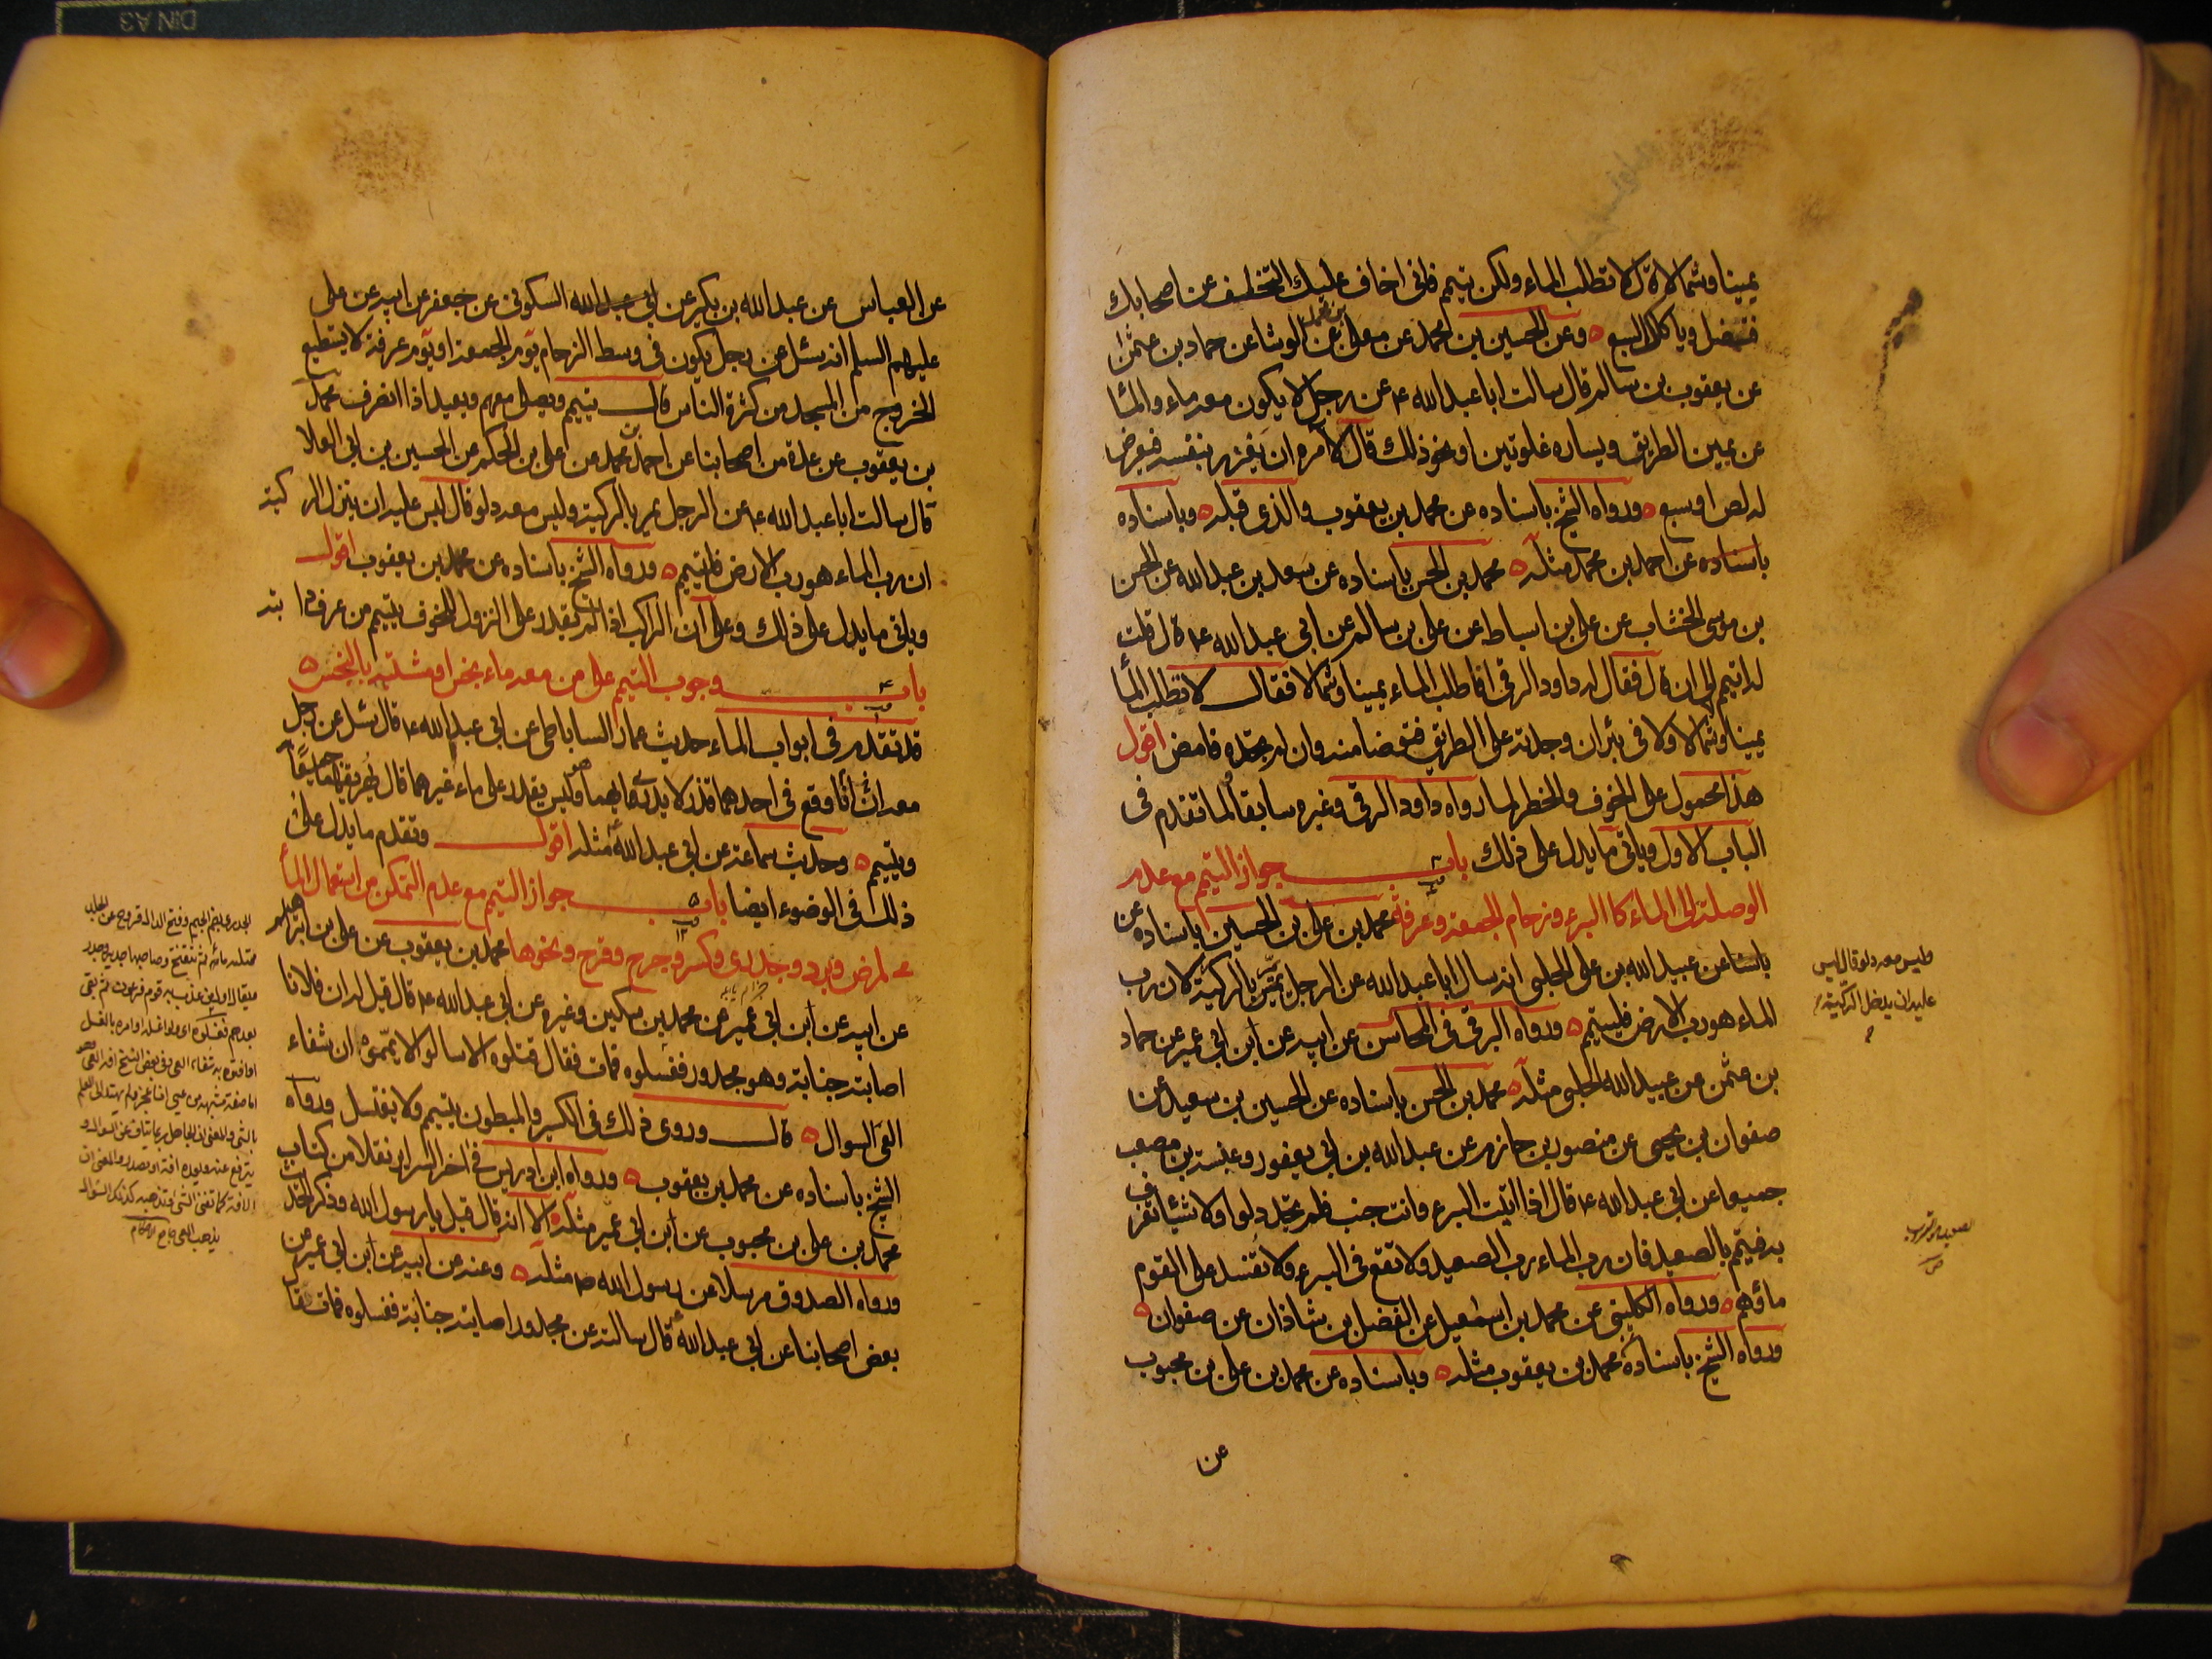 يمينا وشمالا قال لا تطلب الماء ولكن تيمم فاني اخاف عليك التخلف عن اصحابك
فتضل وياكلك السبع وعن الحسين بن محمد عن معلى بن محمد عن الوشا عن حماد بن عثمن
عن يعقوب بن سالم قال سالت ابا عبد الله ع عن رجل لا يكون معه ماء والماء
عن يمين الطريق ويساره غلوتين او نحو ذلك قال لا آمره ان يغرر بنفسه فيعرض
له لص او سبع ورواه الشيخ باسناده عن محمد بن يعقوب والذي قبله وباسناده
باسناده عن احمد بن محمد مثله محمد بن الحسن باسناده عن سعد بن عبد الله عن الحسن
بن موسى الخشاب عن علي بن اسباط عن علي بن سالم عن ابي عبد الله ع قال قلت
له اتيمم الى ان قال فقال له داود الرقي افاطلب الماء يمينا وشمالا فقال لا تطلب الماء
يمينا وشمالا ولا في بئر ان وجدته على الطريق فتوضا منه وان لم تجده فامض اقول
هذا محمول على الخوف والخطر لما رواه داود الرقي وغيره سابقا ولما تقدم في
الباب الاول وياتي ما يدل على ذلك باب جواز التيمم مع عدم
الوصلة الى الماء كالبئر وزحام الجمعة وعرفة محمد بن علي بن الحسين باسناده عن
عن عبيد الله بن علي الحلبي انه سال ابا عبد الله عن الرجل يمر بالركية لان رب
الماء هو رب الارض فليتيمم ورواه البرقي في المحاسن عن ابيه عن ابن ابي عمير عن حماد
بن عثمن عن عبيد الله الحلبي مثله محمد بن الحسن باسناده عن الحسين بن سعيد عن
صفوان بن يحيى عن منصور بن حازم عن عبد الله بن ابي يعفور وعنبسة بن مصعب
جميعا عن ابي عبد الله ع قال اذا اتيت البئر وانت جنب فلم تجد دلوا ولا شيئا تغرف
به فتيمم بالصعيد فان رب الماء رب الصعيد ولا تقع في البئر ولا تفسد على القوم
ماؤهم ورواه الكليني عن محمد بن اسمعيل عن الفضل بن شاذان عن صفوان
ورواه الشيخ باسناده محمد بن يعقوب مثله وباسناده عن محمد بن علي بن محبوب
عن
وليس معه دلو قال ليس
عليه ان يدخل الركية
الصعيد هو التراب
ص
عن العباس عن عبد الله بن بكير عن ابي عبد الله السكوني عن جعفر عن ابيه عن علي
عليهم السلم انه سئل عن رجل يكون في وسط الزحام يوم الجمعة او يوم عرفة لا يستطيع
الخروج من المسجد من كثرة الناس قال يتيمم ويصلي معهم ويعيد اذا انصرف محمد
بن يعقوب عن عدة من اصحابنا عن احمد بن محمد عن علي بن الحكم عن الحسين بن ابي العلا
قال سالت ابا عبد الله ع عن الرجل يمر بالركية وليس معه دلو قال ليس عليه ان ينزل الركية
ان رب الماء هو رب الارض فليتيمم ورواه الشيخ باسناده عن محمد بن يعقوب اقول
وياتي ما يدل على ذلك وعلى ان الراكب اذا لم يقدر على النزول للخوف يتيمم من عرف دابته
باب وجوب التيمم على من معه ماء نجس او مشتبه بالنجس
قد تقدم في ابواب الماء حديث عمار الساباطي عن ابي عبد الله ع قال سئل عن رجل
معه اناآن وقع في احدهما قذر لا يدري ايهما هو وليس يقدر على ماء غيرهما قال يهريقهما جميعا
ويتيمم وحديث سماعة عن ابي عبد الله ع مثله اقول وتقدم ما يدل على
ذلك في الوضوء ايضا باب جواز التيمم مع عدم التمكن من استعمال الماء
لمرض وبرد وجدري وكسر وجرح وقرح ونحوها محمد بن يعقوب عن علي بن ابراهيم
عن ابيه عن ابن ابي عمير عن محمد بن سكين وغيره عن ابي عبد الله ع قال قيل له ان فلانا
اصابته جنابة وهو مجدور فغسلوه فمات فقال قتلوه الا سالوا الا يمموه ان شفاء
العي السوال قال وروى ذلك في الكسير والمبطون يتيمم ولا يغتسل ورواه
الشيخ باسناده عن محمد بن يعقوب ورواه ابن ادريس في اخر السرائر نقلا من كتاب
محمد بن علي بن محبوب عن ابن ابي عمير مثله الا انه قال قيل يا رسول الله وذكر الحديث
ورواه الصدوق مرسلا عن رسول الله ص مثله وعنه عن ابيه عن ابن ابي عمير عن
بعض اصحابنا عن ابي عبد الله ع قال سالته عن مجدور اصابته جنابة فغسلوه فمات فقال
الجدري بضم الجيم وفتح الدال قروح عن الجلد
ممتلئة ماء ثم تنفتح وصاحبها جدير ومجدر